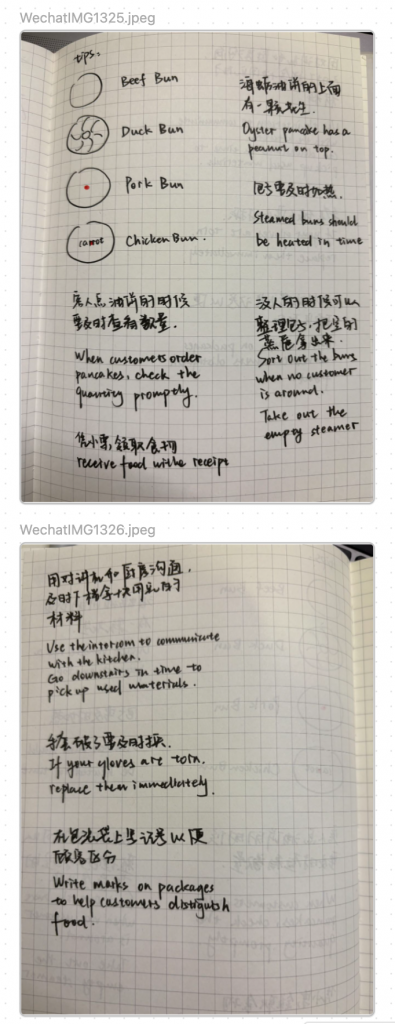 WechatIMG1325.jpeg
tips:
Beef Bun
Duck Bun
Pork Bun
carrot
Chicken Bun.
海蛎油饼的上面
有一颗花生.
Oyster pancake has a
peanut on top.
包子要及时加热.
Steamed buns should
be heated in time
客人点油饼的时候
要及时查看数量.
When customers order
pancakes, check the
quantity promptly.
凭小票领取食物
receive food withe receipt
没人的时候可以
整理包子,把空的
蒸屉拿出来.
Sort out the buns
when no customer
is around.
Take out the
empty steamer
WechatIMG1326.jpeg
用对讲机和厨房沟通.
及时下楼拿
材料
Use the intercom to communicate
with the kitchen.
Go downstairs in time to
pick up used materials.
手套破了要及时换.
If your gloves are torn.
replace them immediately.
在包装上写记号以便
顾客区分
Write marks on packages
to help customers distiguish
food.